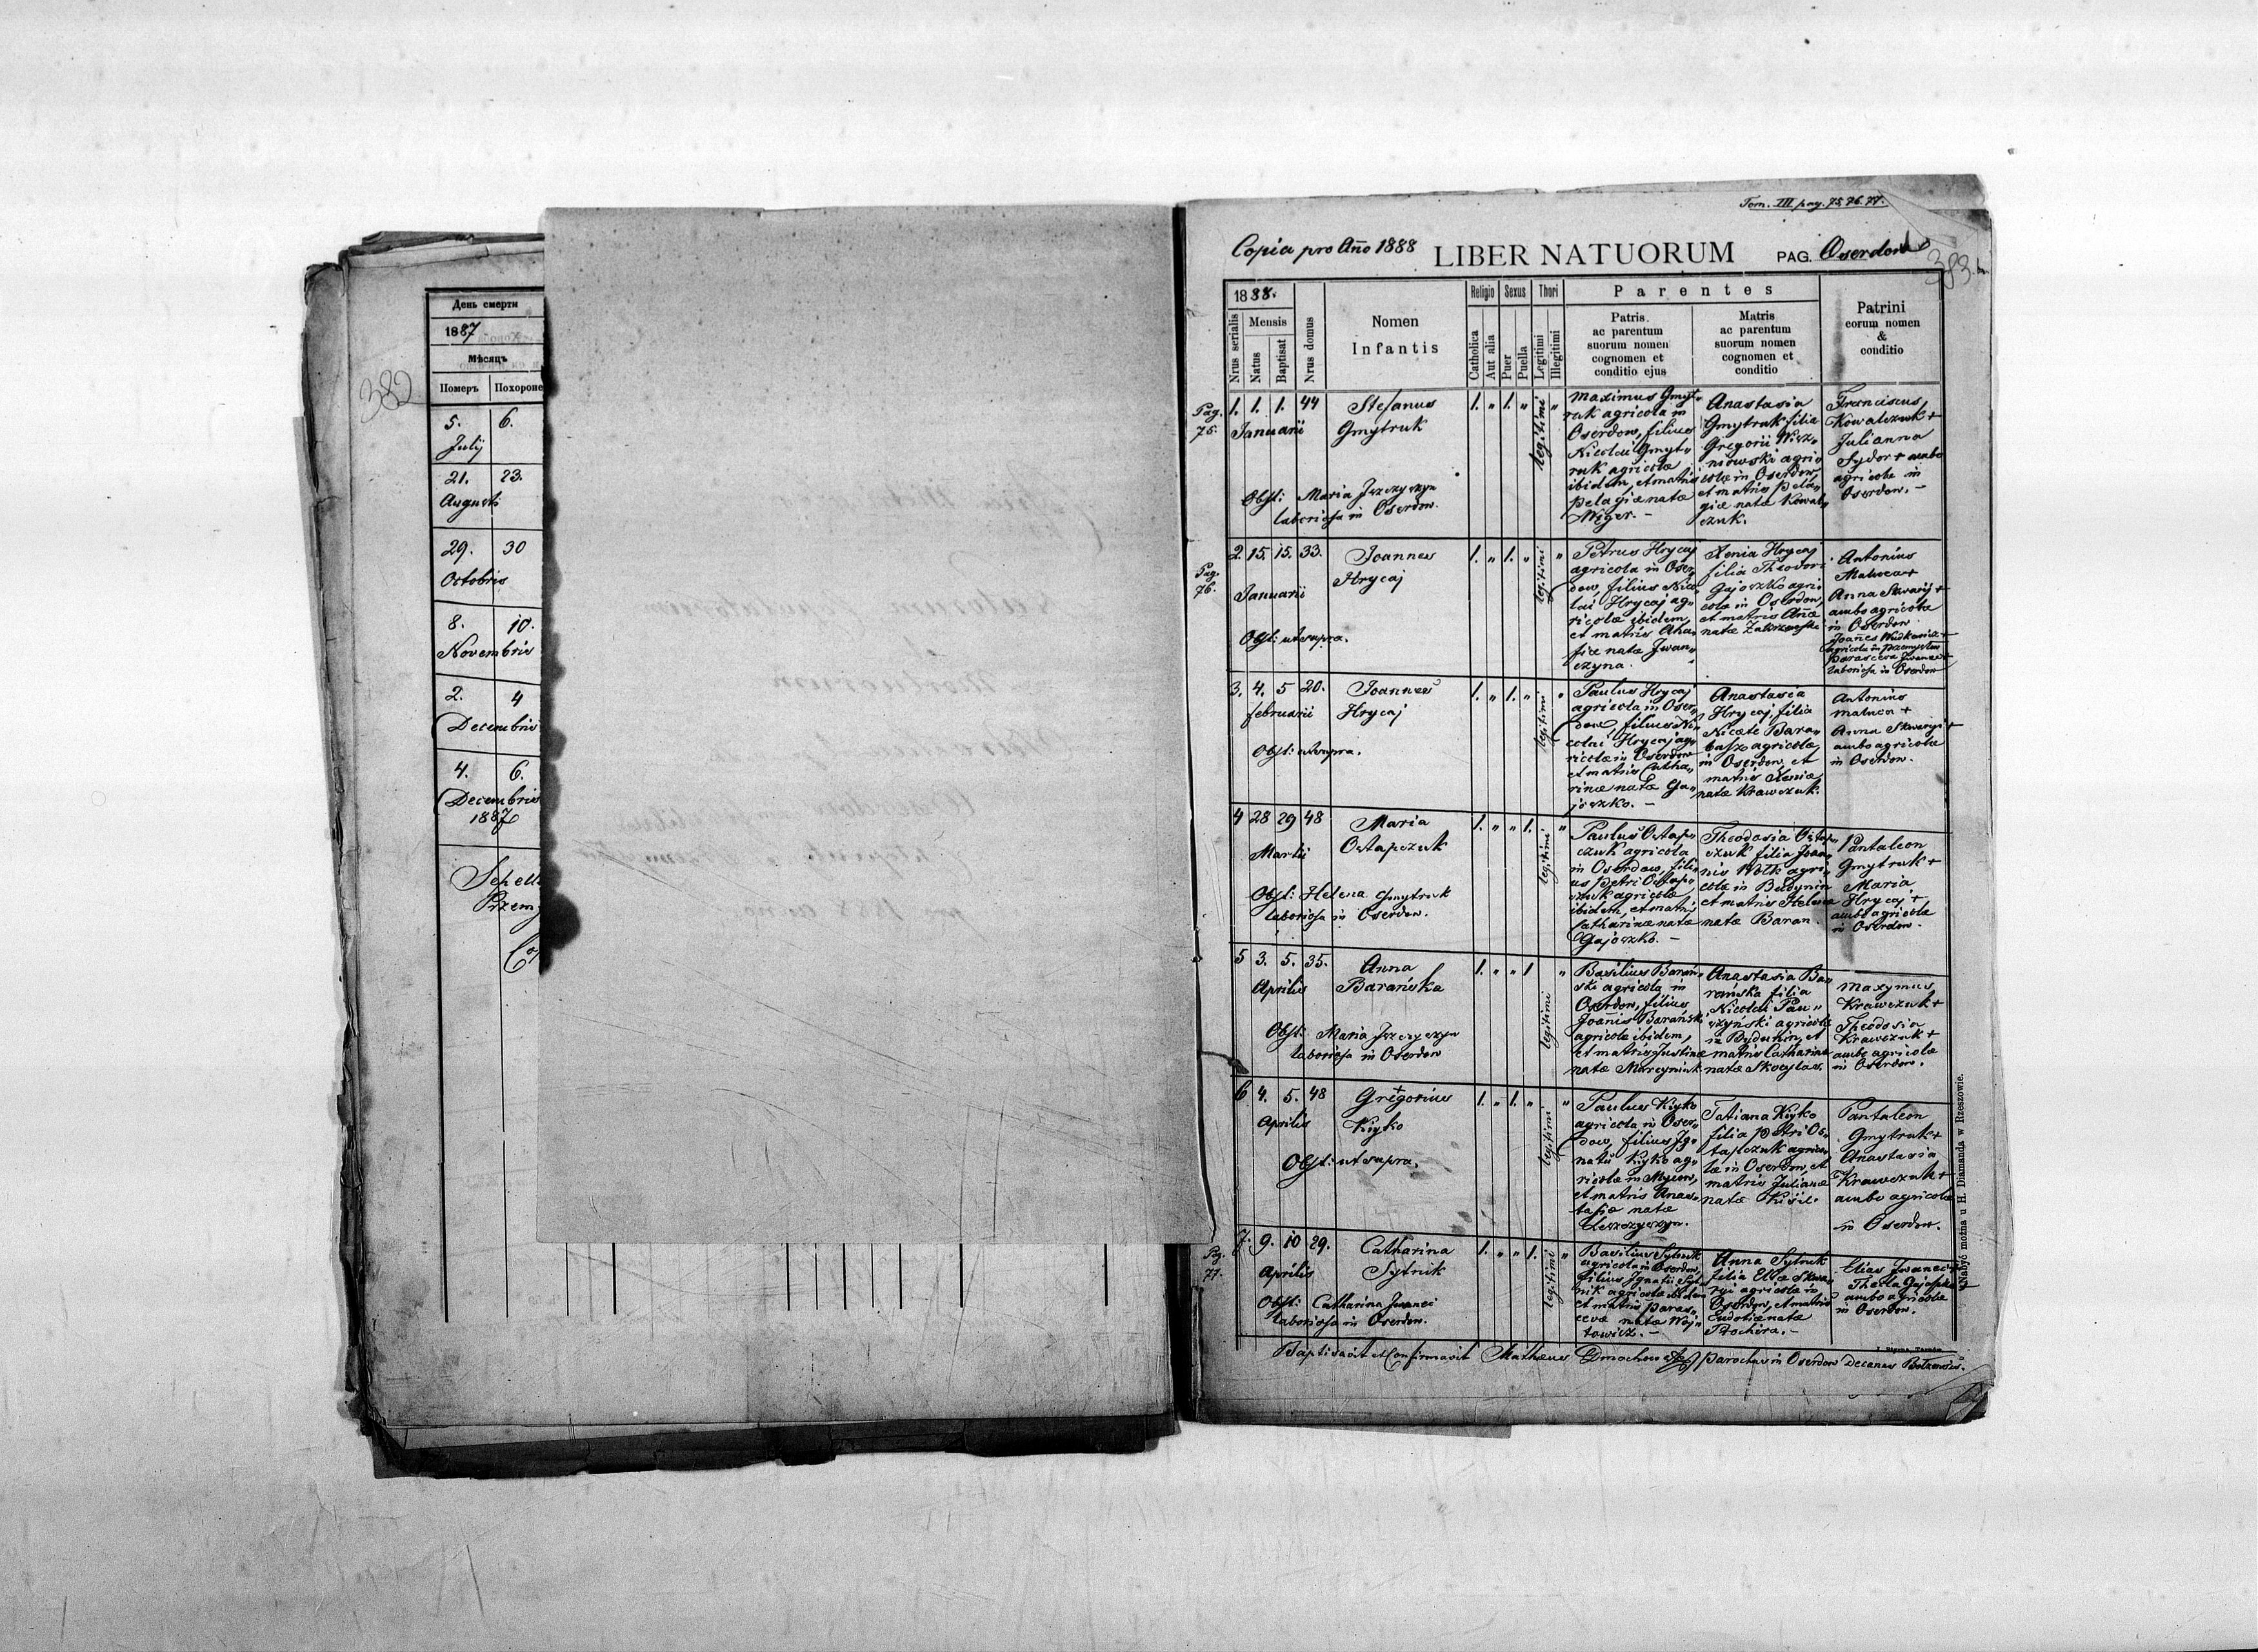 382
День смерти
1887
Мѣсяцъ
Померъ Похороне
5. 6.
Julij
21. 23.
Augusti
29. 30
Octobris
8. 10.
Novembris
2. 4
Decembris
4. 6.
Decembris
1887
Schell
Przemy
Tom. III pag. 75. 76. 77.
Copia pro Año 1888 LIBER NATUORUM PAG. Oserdow
383
1888.
Nrus serialis
Mensis
Natus
Baptisat
Nrus domus
Nomen
Infantis
Religio
Catholica
Aut alia
Sexus
Puer
Puella
Thori
Legitimi
Illegitimi
Parentes
Patris
ac parentum
suorum nomen
cognomen et
conditio ejus
Matris
ac parentum
suorum nomen
cognomen et
conditio
Patrini
eorum nomen
&
conditio
Pag.
75.
1. 1. 1. 44
Januarii
Stefanus
Gmytruk
Obst: Maria Jszczyszyn
laboriosa in Oserdow.
1. " 1. "
legitimi
"
Maximus Gmyt„
ruk agricola in
Oserdow, filius
Nicolai Gmyt„
ruk agricolæ
ibidem, et matris
Pelagiæ natæ
Węger. –
Anastasia
Gmytruk filia
Gregorii Wisz„
niowski agri„
colæ in Oserdow,
et matris Pela„
giæ natæ Kowal„
czuk.
Franciscus
Kowalczuk +
Julianna
Sydor + ambo
agricolæ in
Oserdow. –
Pag.
76.
2. 15. 15. 33.
Januarii
Joannes
Hrycaj
Obst: ut supra.
1. " 1. "
legitimi
"
Petrus Hrycaj
agricola in Oser„
dow, filius Nico„
lai Hrycaj ag„
ricolæ ibidem,
et matris Aha„
fiæ natæ Jwan„
czyna.
Xenia Hrycaj
filia Theodori
Gajoszko agri„
colæ in Oserdow,
et matris Añæ
natæ
Antonius
Matwca +
Anna Skwaryj +
ambo agricolæ
in Oserdow.
Joañes
agricola in Przemysłow
Parasceva
laboriosa in Oserdow
3. 4. 5 20.
februarii
Joannes
Hrycaj
Obst: ut supra.
1. " 1. "
legitimi
"
Paulus Hrycaj
agricola in Oser„
dow, filius Ni„
colai Hrycaj ag„
ricolæ in Oserdow
et matris Catha„
rinæ natæ Ga„
joszko. –
Anastasia
Hrycaj, filia
Nicetæ Bara„
basz agricolæ
in Oserdow, et
matris Xeniæ
natæ Krawczuk.
Antonius
Matwca +
Anna Skwaryj +
ambo agricolæ
in Oserdow.
4 28 29 48
Martii
Maria
Ostapczuk
Obst: Helena Gmytruk
laboriosa in Oserdow.
1. " " 1.
legitimi
"
Paulus Ostap„
czuk agricola
in Oserdow, fili„
us Petri Ostap„
czuk agricolæ
ibidem, et matris
Catharinæ natæ
Gajoszko. –
Theodosia Ostap„
czuk filia Joan„
nis Wołk agri„
colæ in Budynin
et matris Helenæ
natæ Baran.
Pantaleon
Gmytruk +
Maria
Hrycaj +
ambo agricolæ
in Oserdow.
5 3. 5. 35.
Aprilis
Anna
Barańska
Obst: Maria Jszczyszyn
laboriosa in Oserdow
1. " " 1
legitimi
"
Basilius Barań„
ski agricola in
Oserdow, filius
Joañis Barański
agricolæ ibidem,
et matris Justinæ
natæ Marcyniuk
Anastasia Ba„
rańska filia
Nicolai Pau„
szyński agricolæ
in Budynin, et
matris Catharinæ
natæ Skocylas.
Maxymus
Krawczuk +
Theodosia
Krawczuk +
ambo agricolæ
in Oserdow.
6 4. 5. 48
Aprilis
+
Gregorius
Kiyko
Obst: ut supra.
1. " 1. "
legitimi
"
Paulus Kiyko
agricola in Oser„
dow, filius Jg„
natii Kiyko ag„
ricolæ in Mycow,
et matris Anas„
tasiæ natæ
Leszczyszyn.
Tatiana Kiyko
filia Petri Os„
tapczuk agrico„
læ in Oserdow, et
matris Julianæ
natæ Kisil.
Pantaleon
Gmytruk +
Anastasia
Krawczuk +
ambo agricolæ
in Oserdow.
Pag.
77.
7. 9. 10 29.
Aprilis
Catharina
Sytnik
Obst: Catharina Jwanei
laboriosa in Oserdow.
1. " " 1.
legitimi
"
Basilius Sytnik
agricola in Oserdow,
filius Ignatii Syt„
nik agricolæ ibidem
et matris Paras„
cevæ natæ Woj„
towicz. –
Anna Sytnik
filia Eliæ Skwa„
ryj agricolæ in
Oserdow, et matris
Eudoxiæ natæ
Płochira. –
Elias Jwanec +
Thecla Gajoszko +
ambo agricolæ
in Oserdow.
Baptisavit et Confirmavit Matheus Dmochowski parochus in Oserdow Decanus Bełzensis.
Nabyć można u H. Diamanda w Rzeszowie.